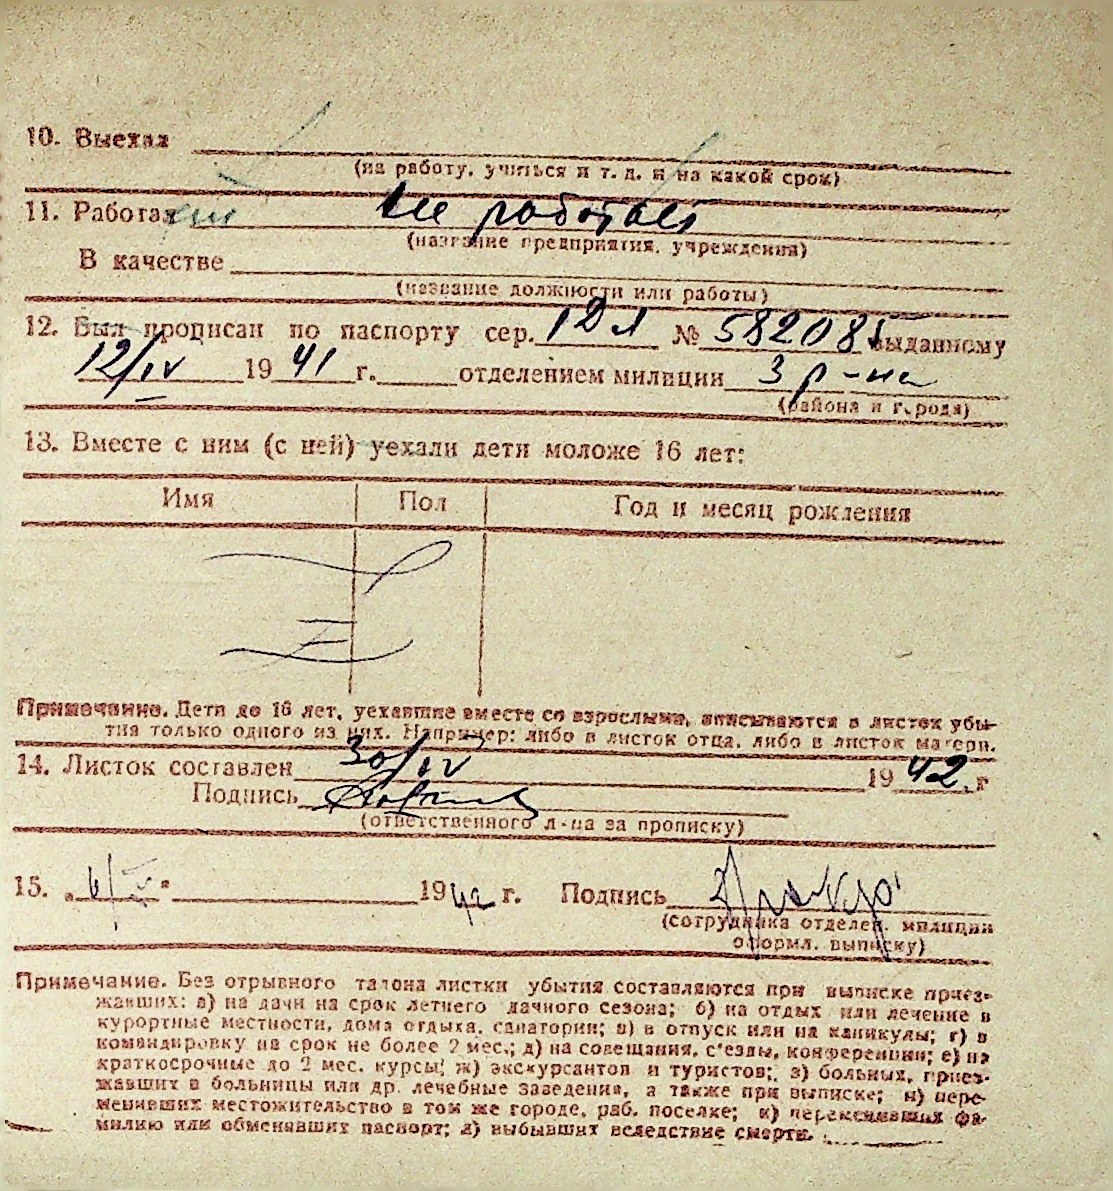 10. Выехал
(на работу, учиться и т. д. и на какой срок)
11. Работал не работает
(название предприятия, учреждения)
В качестве
(название должности или работы)
12. Был прописан по паспорту сер. № 582085 выданному
12/IV 1941 г. отделением милиции 3 р-на
(района и города)
13. Вместе с ним (с ней) уехали дети моложе 16 лет:
Имя Пол Год и месяц рождения
Примечание. Дети до 16 лет, уехавшие вместе со взрослыми, вписываются в листок убы-
тия только одного из них. Например: либо в листок отца, либо в листок матери.
14. Листок составлен 30/IV 1942 г
Подпись
(ответственного л-ца за прописку)
15. „ “ 1942 г. Подпись
(сотрудника отделен. милиции
оформл. выписку)
Примечание. Без отрывного талона листки убытия составляются при выписке приез-
жавших: а) на дачи на срок летнего дачного сезона; б) на отдых или лечение в
курортные местности, дома отдыха, санатории; в) в отпуск или на каникулы; г) в
командировку на срок не более 2 мес.; д) на совещания, с'езды, конференции; е) на
краткосрочные до 2 мес. курсы; ж) экскурсантов и туристов; з) больных, приез-
жавших в больницы или др. лечебные заведения, а также при выписке; и) пере-
менивших местожительство в том же городе, раб. поселке; к) переменивших фа-
милию или обменявших паспорт; л) выбывших вследствие смерти.